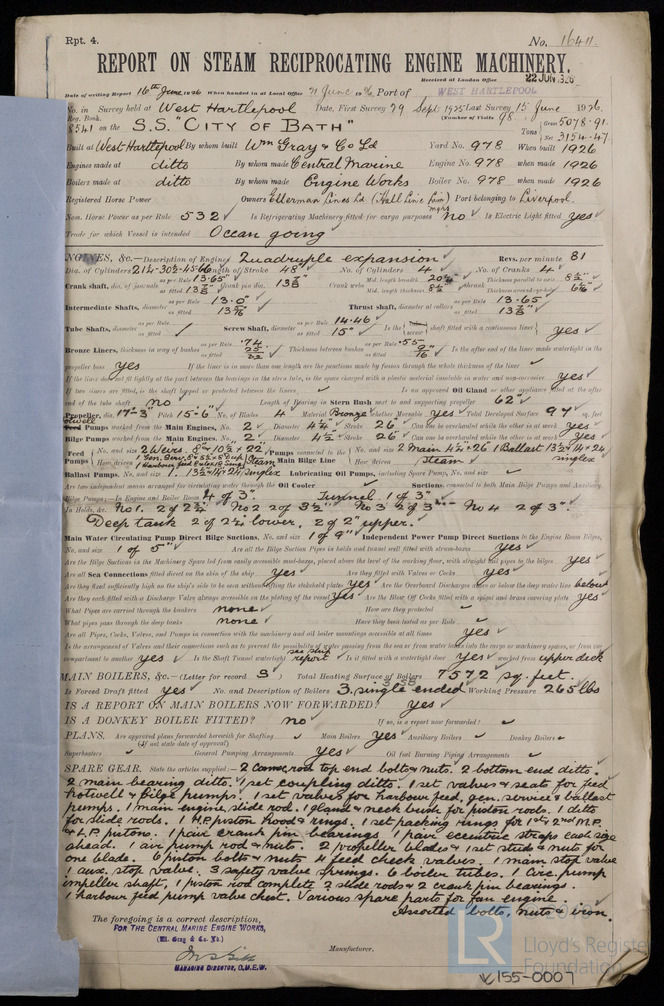 Rpt. 4.
No. 16411.
REPORT ON STEAM RECIPROCATING ENGINE MACHINERY.
Received at London Office 22 JUN 1926
Date of writing Report 16th June 1926 When handed in at Local Office 21 June 1926 Port of WEST HARTLEPOOL
No. in Reg. Book. Survey held at West Hartlepool Date, First Survey 29 Sept: 1925 Last Survey 15 June 1926.
(Number of Visits 98.
8541 on the S.S. "CITY OF BATH" Tons Gross 5078.91 Net 3154.47
Built at West Hartlepool By whom built Wm Gray & Co Ld Yard No. 978 When built 1926
Engines made at ditto By whom made Central Marine Engine No. 978 when made 1926
Boilers made at ditto By whom made Engine Works Boiler No. 978 when made 1926
Registered Horse Power Owners Ellerman Lines Ld (Hall Line Ltd Mgrs) Port belonging to Liverpool.
Nom. Horse Power as per Rule 532 Is Refrigerating Machinery fitted for cargo purposes No Is Electric Light fitted yes
Trade for which Vessel is intended Ocean going
ENGINES, &c.—Description of Engines Quadruple expansion Revs. per minute 81
Dia. of Cylinders 21¼-30½-45-66 Length of Stroke 48" No. of Cylinders 4 No. of Cranks 4
Crank shaft, dia. of journals as per Rule 13.65" as fitted 13⅞" Crank pin dia. 13⅞" Crank webs Mid. length breadth 20½" Mid. length thickness 8½" Thickness parallel to axis 8½" Thickness around eye-hole 6⅛"
Intermediate Shafts, diameter as per Rule 13.0" as fitted 13⅜" Thrust shaft, diameter at collars as per Rule 13.65 as fitted 13⅞"
Tube Shafts, diameter as per Rule as fitted Screw Shaft, diameter as per Rule 14.46 as fitted 15" Is the screw shaft fitted with a continuous liner yes
Bronze Liners, thickness in way of bushes as per Rule .74 as fitted Thickness between bushes as per Rule .55 as fitted 9/16" Is the after end of the liner made watertight in the
propeller boss yes If the liner is in more than one length are the junctions made by fusion through the whole thickness of the liner
If the liner does not fit tightly at the part between the bearings in the stern tube, is the space charged with a plastic material insoluble in water and non-corrosive yes
If two liners are fitted, is the shaft lapped or protected between the liners Is an approved Oil Gland or other appliance fitted at the after
end of the tube shaft no Length of Bearing in Stern Bush next to and supporting propeller 62"
Propeller, dia. 17'-3" Pitch 15'-6" No. of Blades 4 Material Bronze whether Moveable yes Total Developed Surface 97 sq. feet
Hotwell Pumps worked from the Main Engines, No. 2 Diameter 4½" Stroke 26" Can one be overhauled while the other is at work yes
Bilge Pumps worked from the Main Engines, No. 2 Diameter 4½" Stroke 26" Can one be overhauled while the other is at work yes
Feed Pumps No. and size 2 Weirs 8" & 10½ x 22" Pumps connected to the Main Bilge Line No. and size 2 Main 4½" x 26" 1 Ballast 13½ x 14 x 24
How driven Steam How driven Steam simplex
Ballast Pumps, No. and size 1. 13½ x 14 x 24 simplex Lubricating Oil Pumps, including Spare Pump, No. and size
Are two independent means arranged for circulating water through the Oil Cooler Suctions, connected to both Main Bilge Pumps and Auxiliary
Bilge Pumps;—In Engine and Boiler Room 4 of 3". Tunnel 1 of 3"
In Holds, &c. No 1. 2 of 2½" No 2 2 of 3½" No 3 2 of 3" No 4 2 of 3".
Deep tank 2 of 2½ lower, 2 of 2" upper.
Main Water Circulating Pump Direct Bilge Suctions, No. and size 1 of 9" Independent Power Pump Direct Suctions to the Engine Room Bilges,
No. and size 1 of 5" Are all the Bilge Suction Pipes in holds and tunnel well fitted with strum-boxes yes
Are the Bilge Suctions in the Machinery Space led from easily accessible mud-boxes, placed above the level of the working floor, with straight tail pipes to the bilges yes
Are all Sea Connections fitted direct on the skin of the ship yes Are they fitted with Valves or Cocks yes
Are they fixed sufficiently high on the ship's side to be seen without lifting the stokehold plates yes Are the Overboard Discharges above or below the deep water line below
Are they each fitted with a Discharge Valve always accessible on the plating of the vessel yes Are the Blow Off Cocks fitted with a spigot and brass covering plate yes
What Pipes are carried through the bunkers none How are they protected
What pipes pass through the deep tanks none Have they been tested as per Rule
Are all Pipes, Cocks, Valves, and Pumps in connection with the machinery and all boiler mountings accessible at all times yes
Is the arrangement of Valves and their connections such as to prevent the possibility of water passing from the sea or from water tanks into the cargo or machinery spaces, or from one
compartment to another yes Is the Shaft Tunnel watertight see ship report Is it fitted with a watertight door yes worked from upper deck
MAIN BOILERS, &c.—(Letter for record S) Total Heating Surface of Boilers 7572 sq. feet.
Is Forced Draft fitted yes No. and Description of Boilers 3, single ended 3 SB Working Pressure 265 lbs
IS A REPORT ON MAIN BOILERS NOW FORWARDED? yes
IS A DONKEY BOILER FITTED? no If so, is a report now forwarded?
PLANS. Are approved plans forwarded herewith for Shafting Main Boilers yes Auxiliary Boilers Donkey Boilers
(If not state date of approval)
Superheaters General Pumping Arrangements yes Oil fuel Burning Piping Arrangements
SPARE GEAR. State the articles supplied:— 2 conn: rod top end bolts & nuts. 2 bottom end ditto.
2 main bearing ditto. 1 set coupling ditto. 1 set valves & seats for feed
hotwell & bilge pumps. 1 set valves for harbour feed, gen. service & ballast
pumps. 1 main engine slide rod. 1 gland & neck bush for piston rods. 1 ditto
for slide rods. 1 H.P. piston hood & rings. 1 set packing rings for 1st, 2nd M.P.
& L.P. pistons. 1 pair crank pin bearings 1 pair eccentric straps each size
ahead. 1 air pump rod & nuts. 2 propeller blades & 1 set studs & nuts for
one blade. 6 piston bolts & nuts 4 feed check valves. 1 main stop valve
1 aux. stop valve. 3 safety valve springs. 6 boiler tubes. 1 Circ. pump
impeller shaft, 1 piston rod complete 2 slide rods & 2 crank pin bearings.
1 harbour feed pump valve chest. Various spare parts for fan engine.
Assorted bolts, nuts & iron.
The foregoing is a correct description,
FOR THE CENTRAL MARINE ENGINE WORKS,
(Wm. Gray & Co. Ld.)
Manufacturer.
MANAGING DIRECTOR, C.M.E.W.
LR
Lloyd's Register
Foundation
W155-0007